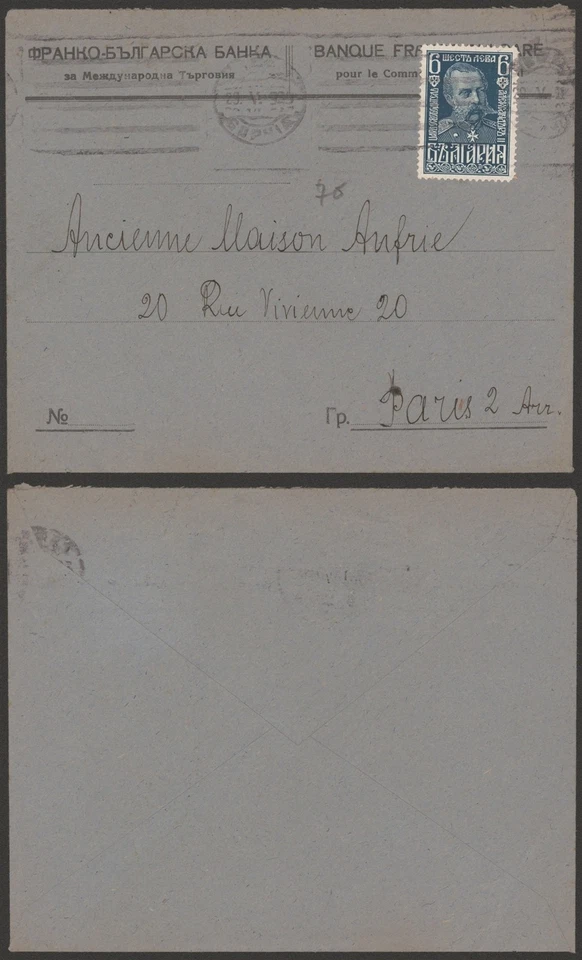 ФРАНКО-БЪЛГАРСКА БАНКА
за Международна Търговия
BANQUE
pour le
6 6
ШЕСТЬ ЛЕВА
БЪЛГАРИЯ
76
Ancienne Maison Aufrie
20 Rue Vivienne 20
№
Гр. Paris 2 Arr.